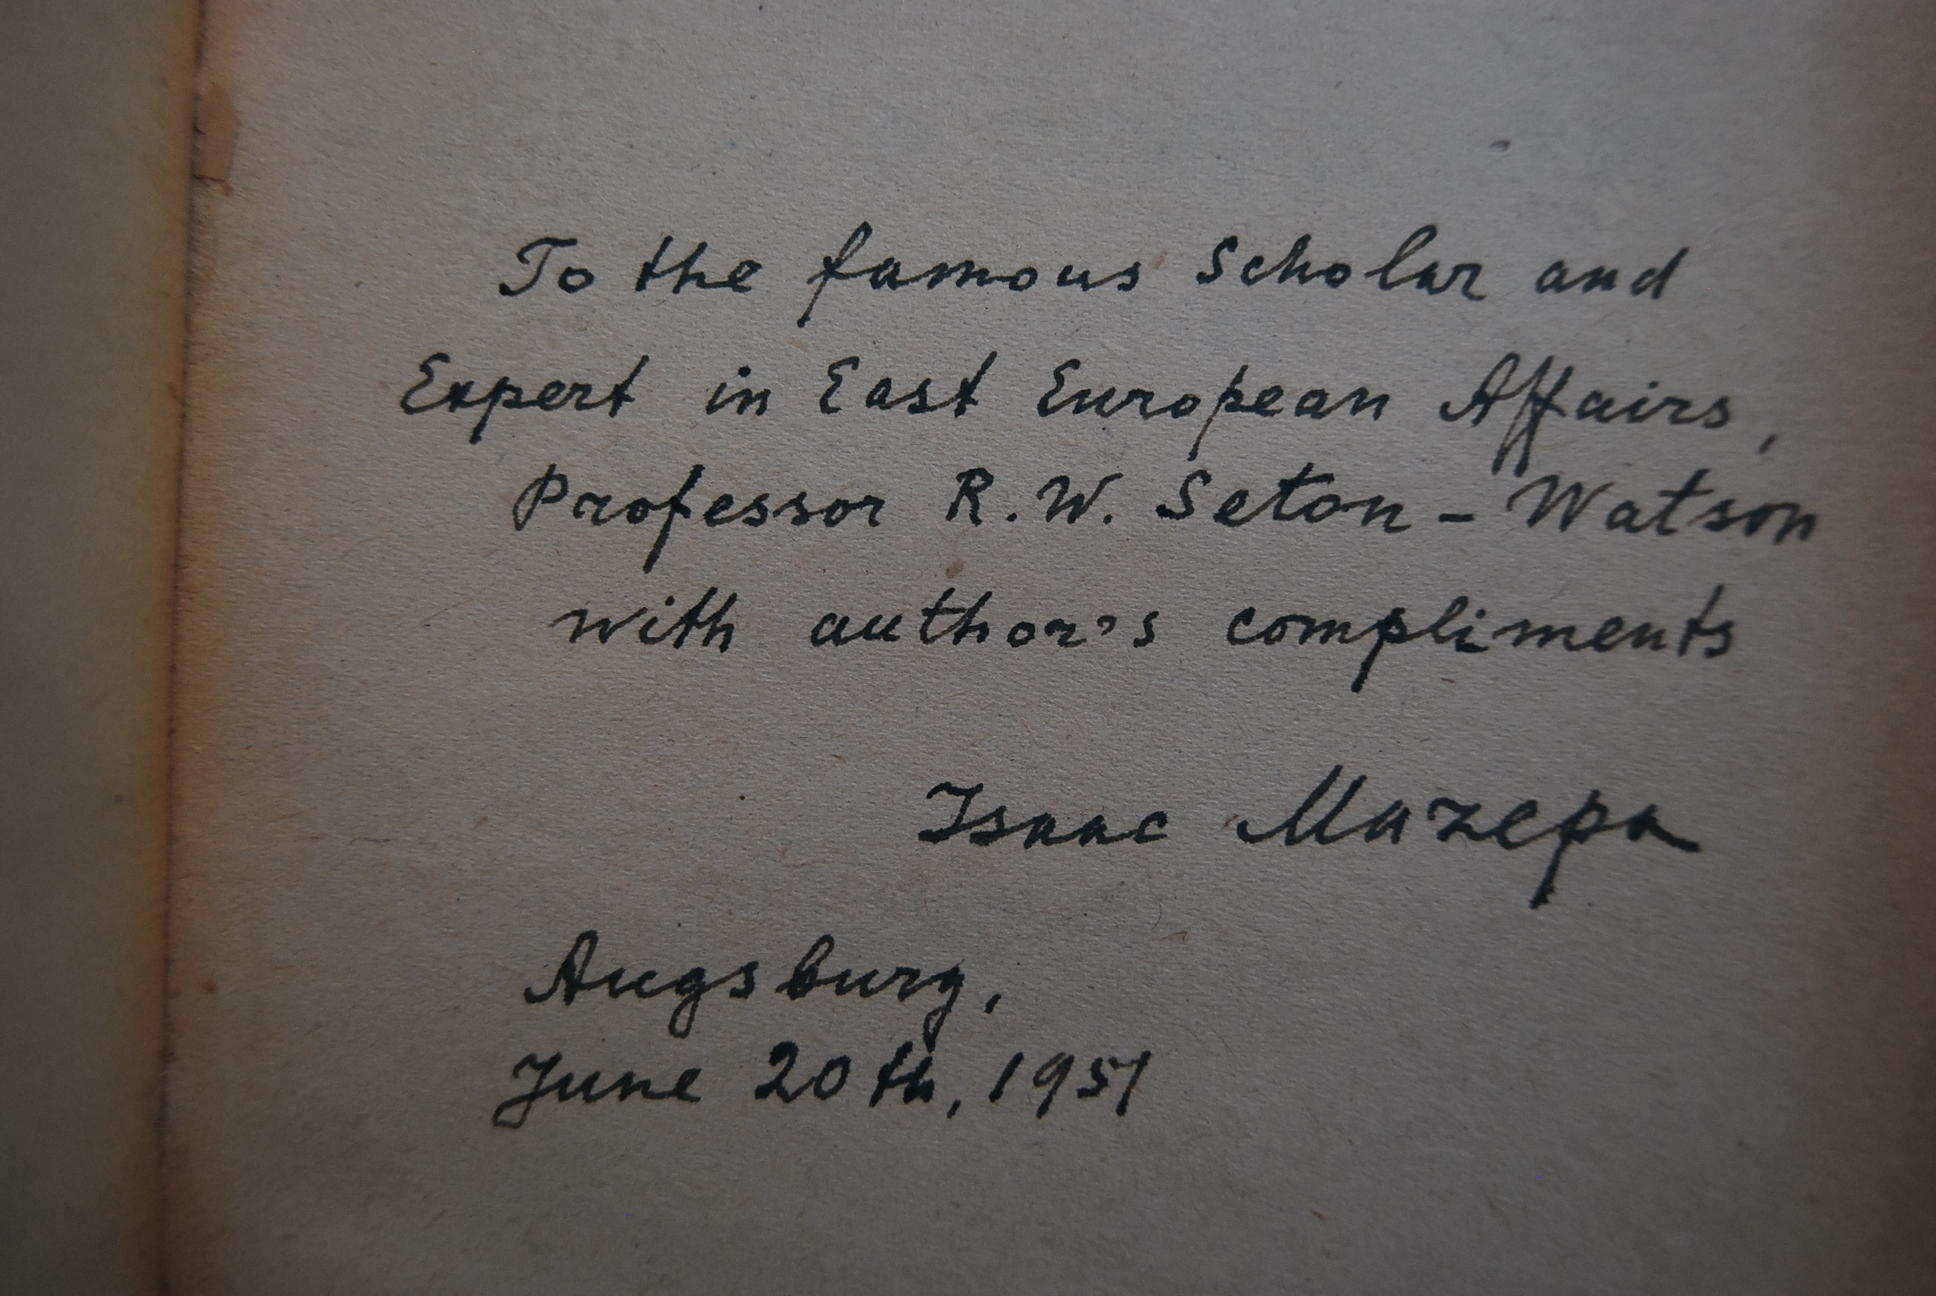 To the famous Scholar and
Expert in East European Affairs,
Professor R.W. Seton-Watson
with author's compliments
Isaac Mazepa
Augsburg,
June 20th, 1951